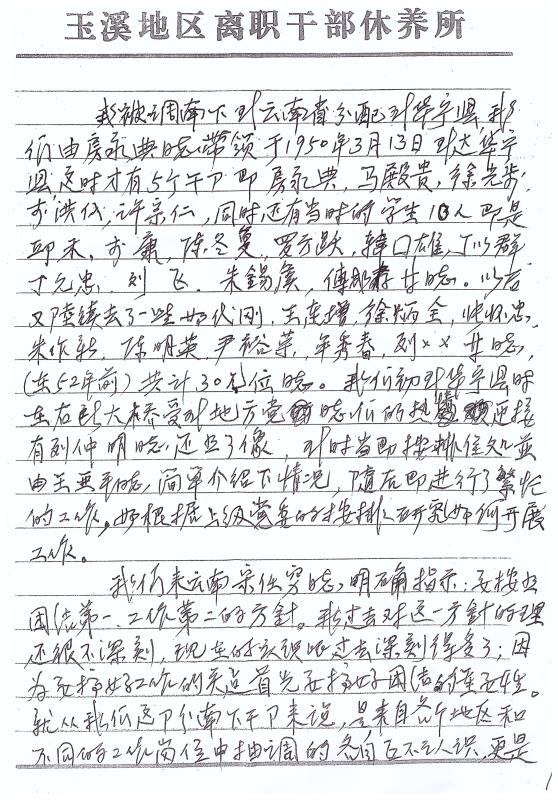 玉溪地区离职干部休养所
我被调南下到云南省分配到华宁县,我
们由房永典同志带领于1950年3月13日到达华宁
县,这时才有5个干部即房永典,马殿贵,徐
洪代,许宗仁,同时还有当时的学生10人即是
邱禾,李康,陈冬夏,罗方跃,韩口雄,丁以群
丁元忠,刘飞,朱锡康,傅 等同志。以后
又陆续去了一些如代刚,王连增,徐炳全,怀忠,
朱作新,陈明英,尹裕芬,年秀春,刘××等同志,
(在52年前)共计30位同志。我们初到华宁县时
在大桥受到地方党同志们的热烈迎接
有刘仲明同志,还照了像,到时当即按排住处并
由王亚平同志,简单介绍下情况,随后即进行了繁忙
的工作。如根据上级党委的按排,研究如何开展
工作。
我们来云南宋任穷同志,明确指示:要按照
团结第一、工作第二的方针。我过去对这一方针的理
还很不深刻,现在的认识比过去深刻得多了;因
为要搞好工作的关 首先要搞好团结的重要性。
就从我们这部分南下干部来说,是来自各个地区和
不同的工作岗位中抽调的各自互不认识,更是
1